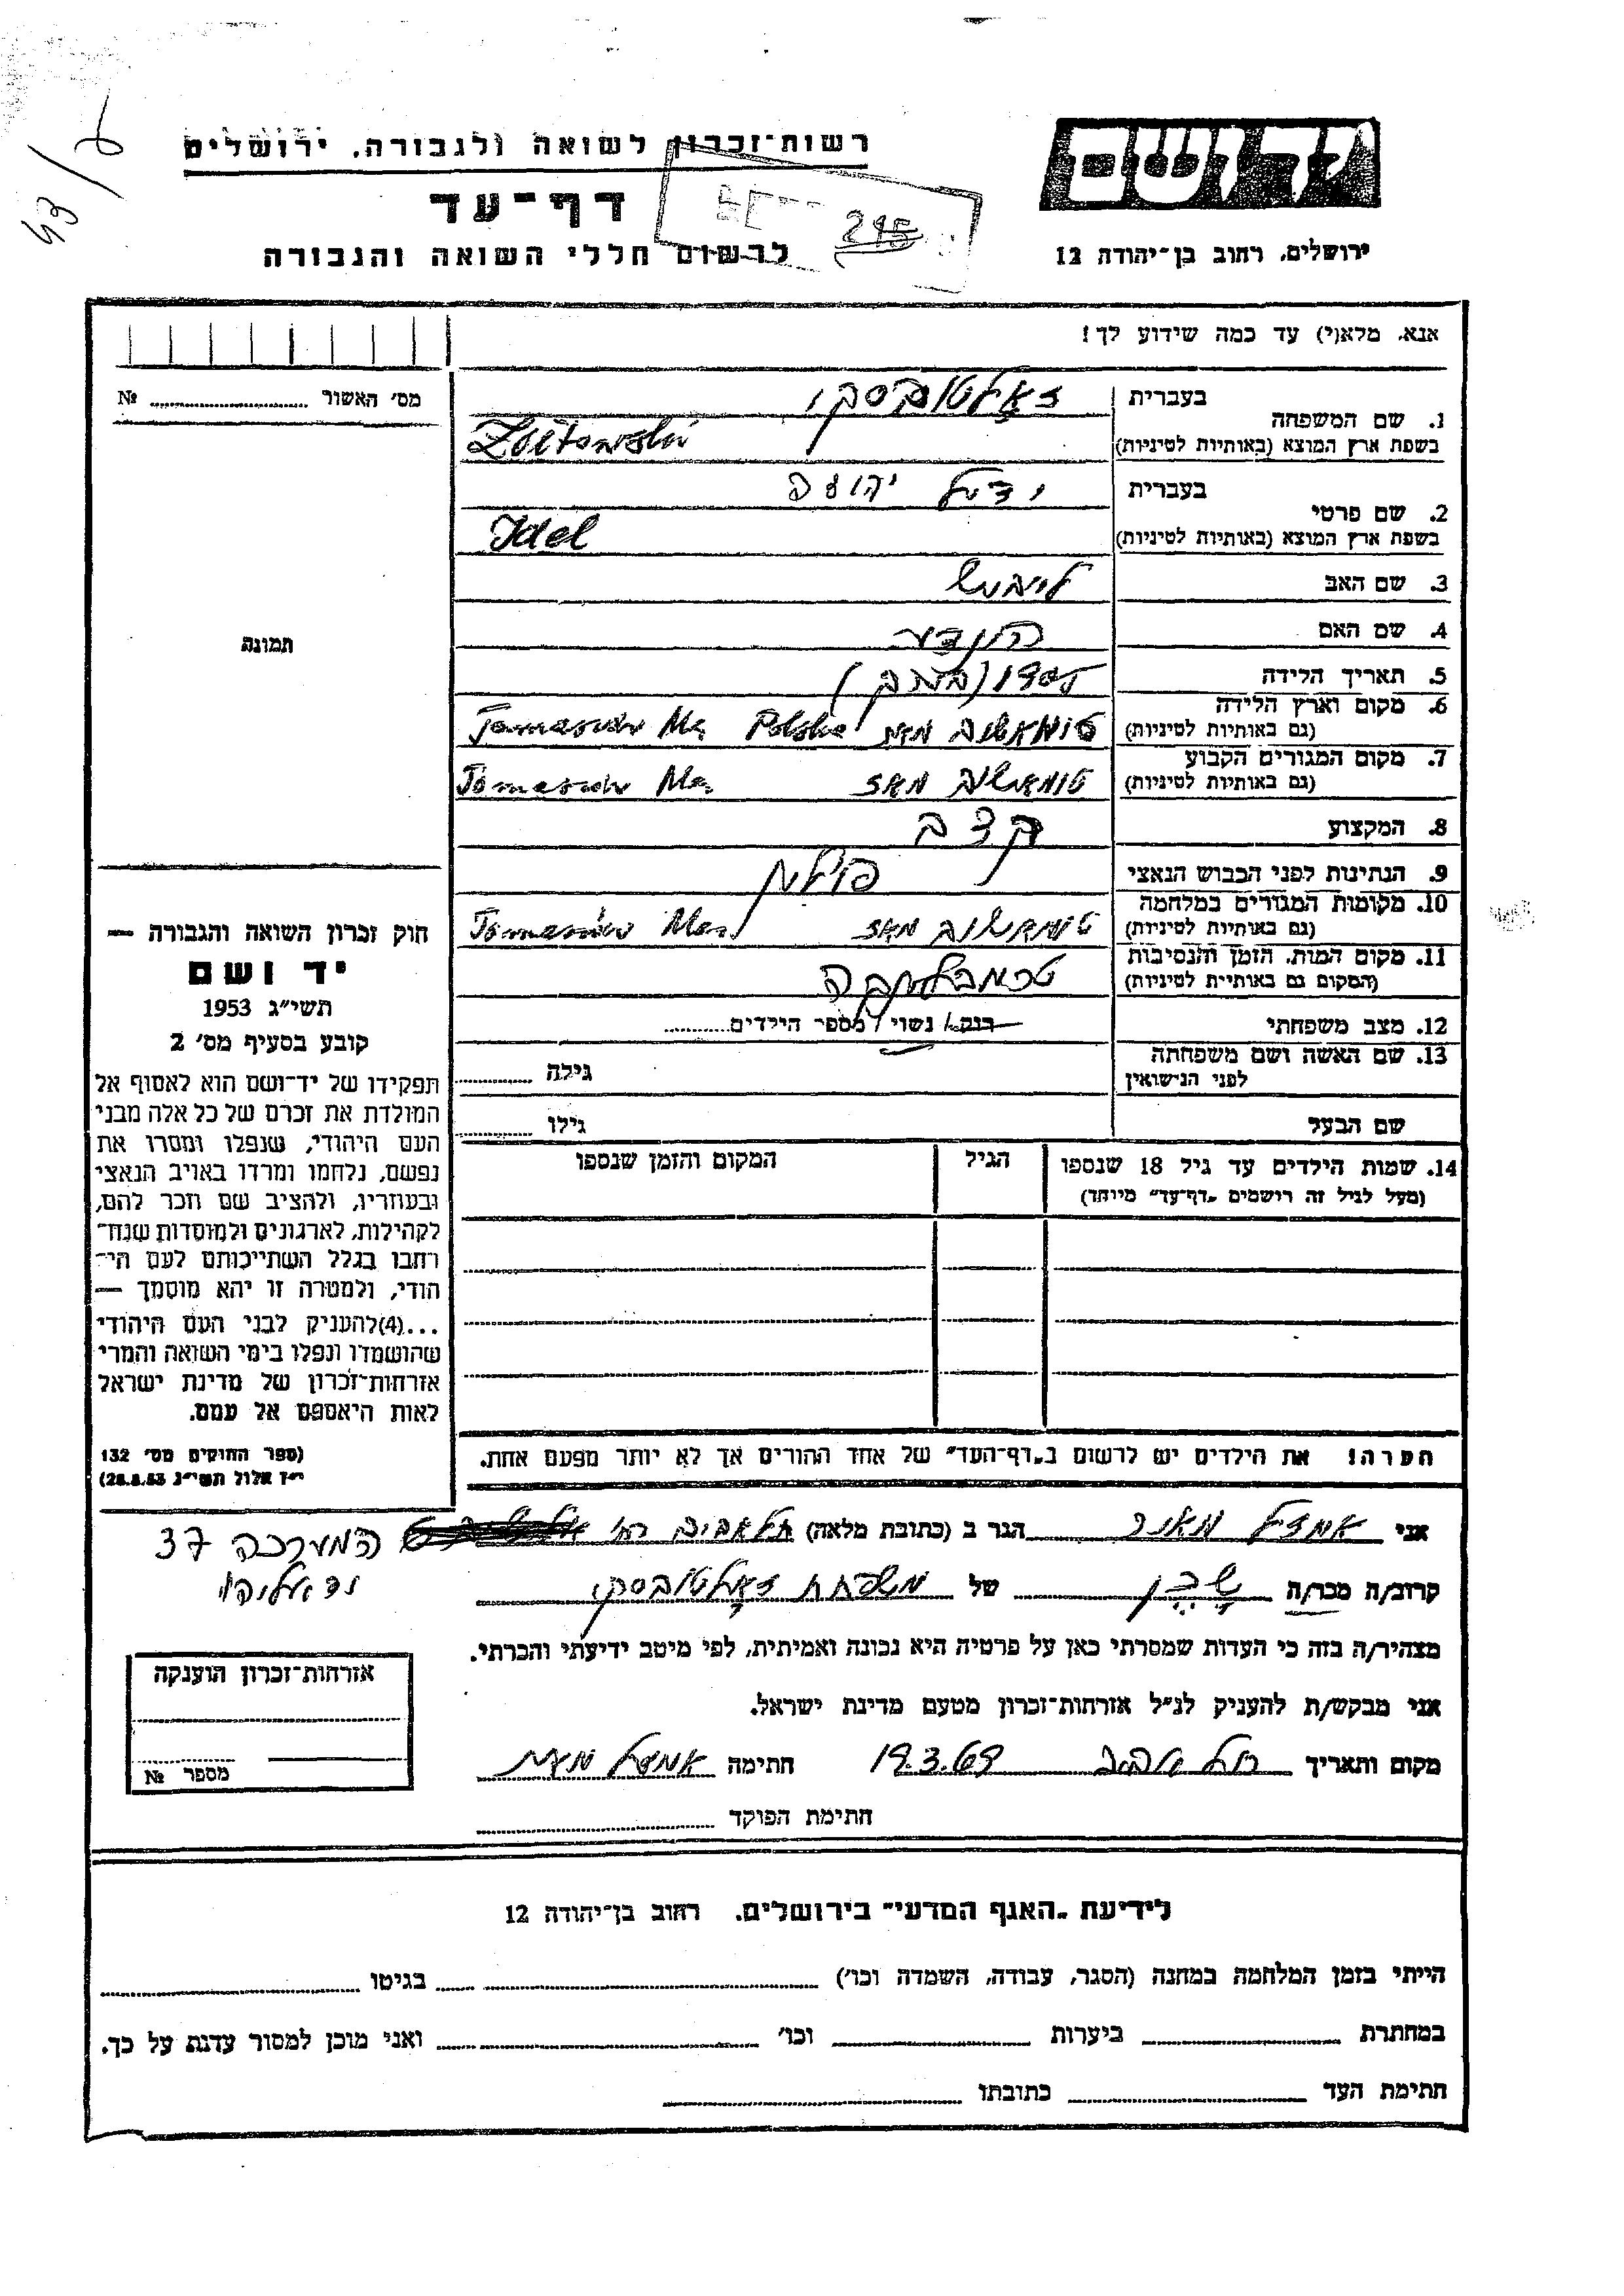 43/ 6
רשות־זכרון לשואה ולגבורה, ירושלים
דף־עד
לרשום חללי השואה והגבורה
245
ידושם
ירושלים, רחוב בן־יהודה 12
אנא, מלא(י) עד כמה שידוע לך!
מס׳ האשור № ........
תמונה
1. שם המשפחה בעברית זאָלטובסקי
בשפת ארץ המוצא (באותיות לטיניות) Zoltowski
2. שם פרטי בעברית ידיל יהודה
בשפת ארץ המוצא (באותיות לטיניות) Idel
3. שם האב לייבוש
4. שם האם הינדע
5. תאריך הלידה
6. מקום וארץ הלידה טומאשוב מאז Tomasców Ma. Polska
(גם באותיות לטיניות)
7. מקום המגורים הקבוע טומאשוב מאז Tomasców Ma.
(גם באותיות לטיניות)
8. המקצוע קצב
9. הנתינות לפני הכבוש הנאצי פולנית
10. מקומות המגורים במלחמה טומאשוב מאז Tomasców Maz
(גם באותיות לטיניות)
11. מקום המות, הזמן והנסיבות טרמבלינקה
(המקום גם באותיות לטיניות)
12. מצב משפחתי רוק/ נשוי/ מספר הילדים ........
13. שם האשה ושם משפחתה גילה ........
לפני הנישואין
שם הבעל גילו ........
14. שמות הילדים עד גיל 18 שנספו הגיל המקום והזמן שנספו
(מעל לגיל זה רושמים „דף־עד״ מיוחד)
חוק זכרון השואה והגבורה —
יד ושם
תשי״ג 1953
קובע בסעיף מס׳ 2
תפקידו של יד־ושם הוא לאסוף אל
המולדת את זכרם של כל אלה מבני
העם היהודי, שנפלו ומסרו את
נפשם, נלחמו ומרדו באויב הנאצי
ובעוזריו, ולהציב שם וזכר להם,
לקהילות, לארגונים ולמוסדות שנח־
רבו בגלל השתייכותם לעם הי־
הודי, ולמטרה זו יהא מוסמך —
...(4)להעניק לבני העם היהודי
שהושמדו ונפלו בימי השואה והמרי
אזרחות־זכרון של מדינת ישראל
לאות היאספם אל עמם.
(ספר החוקים מס׳ 132
י״ז אלול תשי״ג 28.8.53)
הערה! את הילדים יש לרשום ב„דף־העד״ של אחד ההורים אך לא יותר מפעם אחת.
אני הגר ב (כתובת מלאה) תל אביב רח׳ המערכה 37
יד אליהו
קרוב/ה מכר/ה שָכֵן של משפחת זאָלטובסקי
מצהיר/ה בזה כי העדות שמסרתי כאן על פרטיה היא נכונה ואמיתית, לפי מיטב ידיעתי והכרתי.
אני מבקש/ת להעניק לנ״ל אזרחות־זכרון מטעם מדינת ישראל.
מקום ותאריך תל אביב 19.3.69 חתימה
חתימת הפוקד ........
אזרחות־זכרון הוענקה
מספר №
לידיעת „האגף המדעי״ בירושלים, רחוב בן־יהודה 12
הייתי בזמן המלחמה במחנה (הסגר, עבודה, השמדה וכו׳) ........ בגיטו ........
במחתרת ........ ביערות ........ וכו׳ ........ ואני מוכן למסור עדות על כך.
חתימת העד ........ כתובתו ........